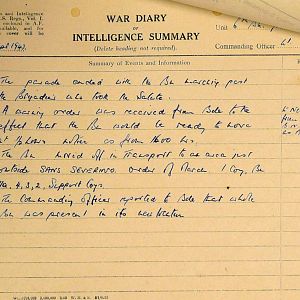 and Intelligence
S. Regs., Vol. I.
enclosed in A.F.
available, and for
cover will be
WAR DIARY
OF
INTELLIGENCE SUMMARY
(Delete heading not required).
Unit
Commanding Officer
Summary of Events and Information
The parade ended with the Bn marching past
the Brigadier who took the Salute.
A warning order was received from Bde to the
effect that the Bn would be ready to move
at hours notice as from 1600 hrs.
The Bn moved off in Transport to an area just
outside SANS SEVERINO. Order of March 1 Coy, Bn
HQ. 4, 3, 2, Support Coys.
The Commanding Officer reported to Bde that whole
Bn was present in its new location